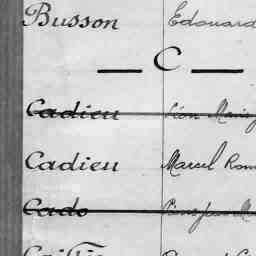 Busson Edouard
— C —
Cadieu Léon Marie
Cadieu Marcel Rom
Cado